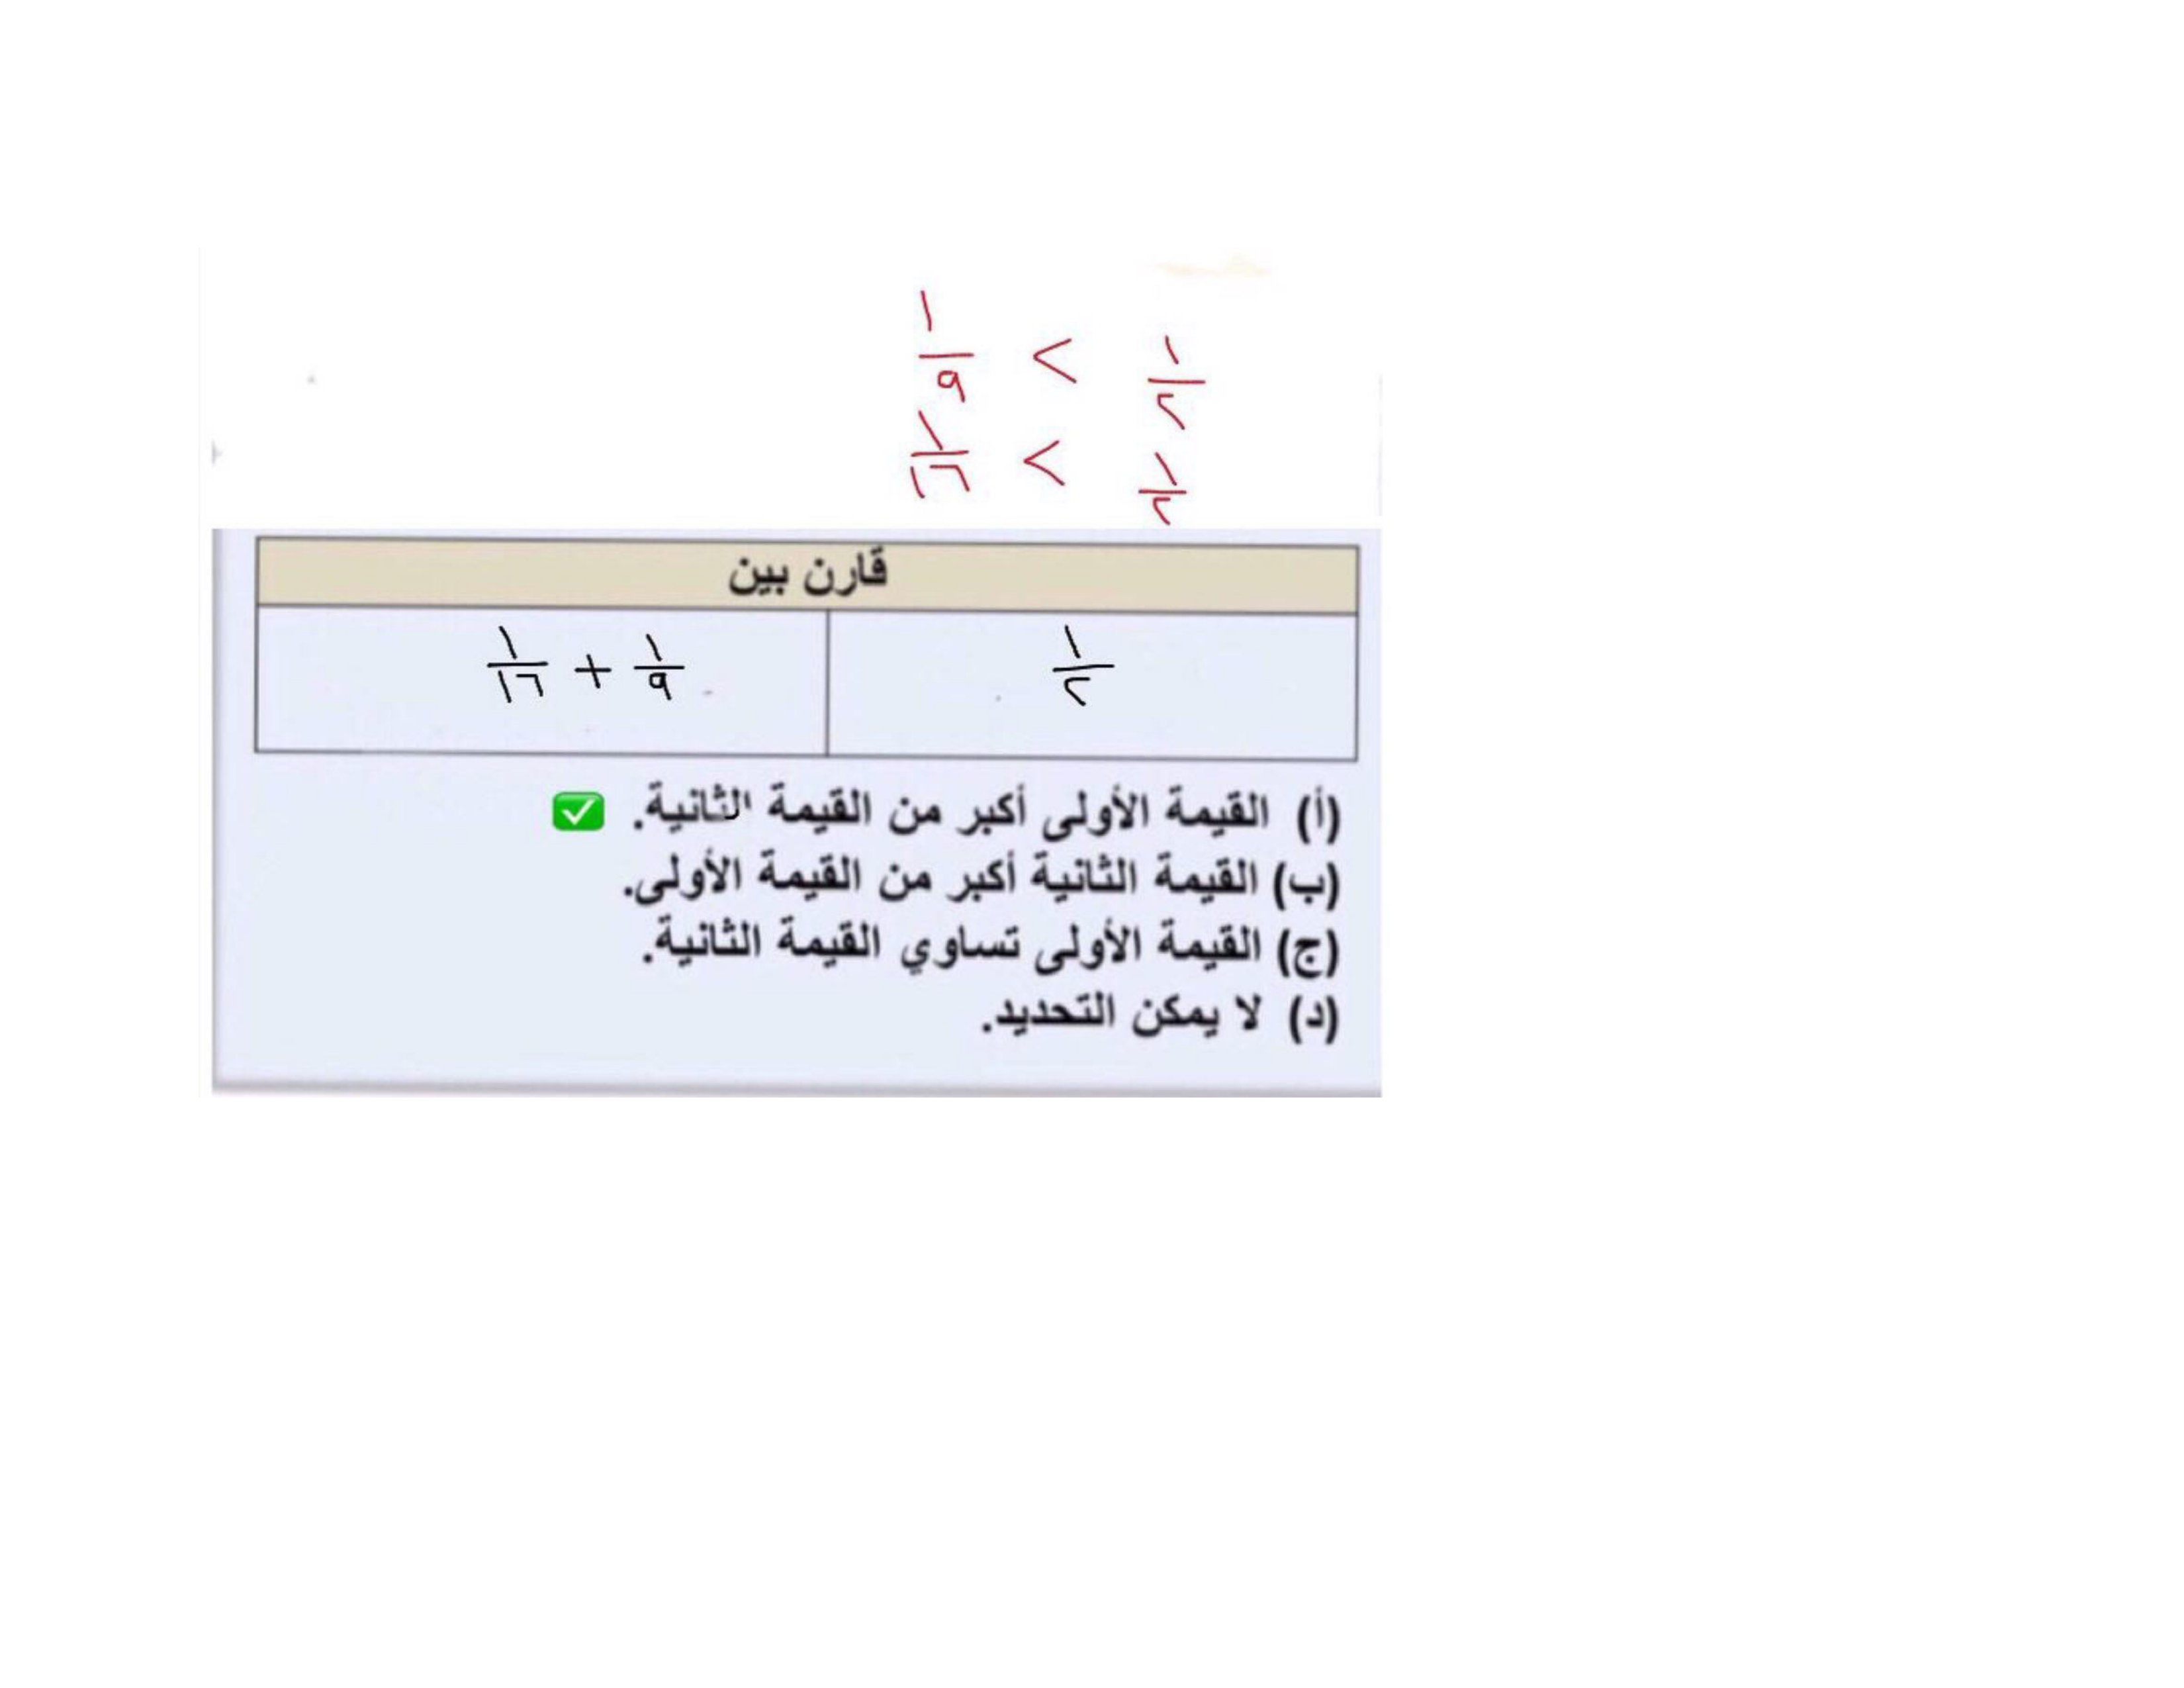 ١/٩ < ١/٢
١/١٦ < ١/٢
قارن بين
١/٢
١/١٦ + ١/٩
(أ) القيمة الأولى أكبر من القيمة الثانية. ✅
(ب) القيمة الثانية أكبر من القيمة الأولى.
(ج) القيمة الأولى تساوي القيمة الثانية.
(د) لا يمكن التحديد.